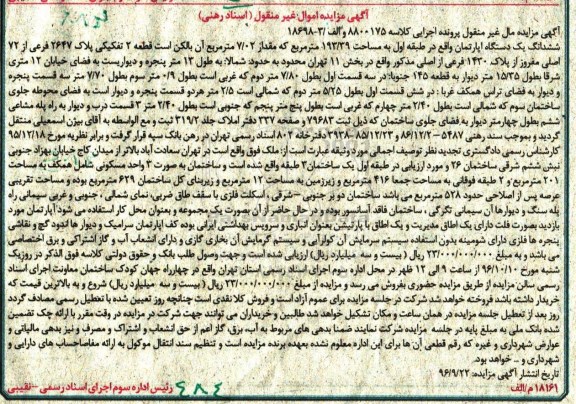 آگهی مزایده اموال غیر منقول (اسناد رهنی)
آگهی مزایده مال غیر منقول پرونده اجرایی کلاسه ۸۸۰۰۱۷۵ والف/۳-۱۸۶۹۸
ششدانگ یک دستگاه آپارتمان واقع در طبقه اول به مساحت ۱۹۳/۳۹ مترمربع که مقدار ۷/۰۲ مترمربع آن بالکن است قطعه ۲ تفکیکی پلاک ۲۶۴۷ فرعی از ۷۲
اصلی مفروز از پلاک ۱۴۳۰ فرعی از اصلی مذکور واقع در بخش ۱۱ تهران محدود به حدود: شمالا: به طول ۱۳ متر پنجره و دیواریست به فضای خیابان ۱۲ متری
شرقا بطول ۱۵/۳۵ متر دیوار به قطعه ۱۴۵ جنوبا: در سه قسمت اول بطول ۷/۸۰ متر دوم که غربی است بطول ۰/۹ متر سوم بطول ۷/۷۰ متر سه قسمت پنجره
و دیوار به فضای تراس همکف غربا : در شش قسمت اول بطول ۵/۲۵ متر دوم که شمالی است ۲/۵ متر هردو قسمت پنجره و دیوار است به فضای محوطه جلوی
ساختمان سوم که شمالی است بطول ۲/۴۰ متر چهارم که غربی است بطول پنج متر پنجم که جنوبی است بطول ۲/۴۰ متر ۳ قسمت درب و دیوار به راه پله مشاعی
ششم بطول چهارمتر دیوار به فضای جلوی ساختمان که ذیل ثبت ۷۹۶۸۳ و صفحه ۳۳۷ دفتر املاک جلد ۳۱۹/۲ ثبت و مع الواسطه به آقای بیژن اسمعیلی منتقل
گردید و بموجب سند رهنی ۵۴۸۷-۸۶/۱۲/۲ و ۸۵/۱۲/۲۳-۳۹۲۸ دفترخانه ۸۰۲ اسناد رسمی تهران در رهن بانک سپه قرار گرفت و برابر نظریه مورخ ۹۵/۱۲/۱۸
کارشناس رسمی دادگستری تجدید نظر توصیف اجمالی مورد وثیقه عبارت است از: ملک فوق واقع است در تهران سعادت آباد بالاتر از میدان کاج خیابان بهزاد جنوبی
نبش ششم شرقی ساختمان ۲۶ و مورد ارزیابی در طبقه اول یک ساختمان ۳ طبقه واقع شده است و ساختمان به صورت ۳ واحد مسکونی شامل همکف به مساحت
۲۰۱ مترمربع و ۲ طبقه فوقانی به مساحت جمعا ۴۱۶ مترمربع و زیرزمین به مساحت ۱۲ مترمربع و زیربنای کل ساختمان ۶۲۹ مترمربع بوده و مساحت تقریبی
عرصه پس از اصلاحی حدود ۵۲۸ مترمربع می باشد ساختمان دو بر جنوبی -شرقی ، اسکلت فلزی با سقف طاق ضربی، نمای شمالی ، جنوبی و غربی سیمانی راه
پله سنگ و دیوارها آن سیمانی تگرگی ، ساختمان فاقد آسانسور بوده و در حال حاضر از آن بصورت یک مجموعه و بعنوان محل کار استفاده می شود آپارتمان مورد
بازدید بصورت فلت دارای یک اطاق مدیریت و یک اطاق با پارتیشن بعنوان انباری و سرویس بهداشتی ایرانی بوده کف آپارتمان سرامیک و دیوار ها اندود گچ و نقاشی
پنجره ها فلزی دارای شومینه بدون استفاده سیستم سرمایش آن کولرآبی و سیستم گرمایش آن بخاری گازی و دارای انشعاب آب و گاز اشتراکی و برق اختصاصی
می باشد و به مبلغ ۲۳/۰۰۰/۰۰۰/۰۰۰ ریال ( بیست و سه میلیارد ریال) ارزیابی شده است و جهت وصول طلب بانک و حقوق دولتی کلاسه فوق الذکر در روزیک
شنبه مورخ ۹۶/۱۰/۱۰ از ساعت ۹ الی ۱۲ ظهر در محل اداره سوم اجرای اسناد رسمی استان تهران واقع در چهارراه جهان کودک ساختمان معاونت اجرای اسناد
رسمی سالن مزایده از طریق مزایده حضوری بفروش می رسد و مزایده از مبلغ ۲۳/۰۰۰/۰۰۰/۰۰۰ ریال ( بیست و سه میلیارد ریال) شروع و به بالاترین قیمت که
خریدار داشته باشد فروخته خواهد شد شرکت در جلسه مزایده برای عموم آزاد است و فروش کلا نقدی است چنانچه روز تعیین شده با تعطیل رسمی مصادف گردد
روز بعد از تعطیل جلسه مزایده در همان ساعت و مکان تشکیل خواهد شد طالبین و خریداران می توانند جهت شرکت در مزایده در وقت مقرر با ارائه چک تضمین
شده بانک ملی به مبلغ پایه در جلسه مزایده شرکت نمایند ضمنا بدهی های مربوط به آب، برق، گاز اعم از حق انشعاب و اشتراک و مصرف و نیز بدهی مالیاتی و
عوارض شهرداری و غیره که رقم قطعی آن ها برای این اداره معلوم نشده بعهده برنده مزایده است و تنظیم سند انتقال موکول به ارائه مفاصاحساب های دارایی و
شهرداری و ... خواهد بود.
تاریخ انتشار آگهی مزایده: ۹۶/۹/۲۲
۱۸۱۶۱ م/الف رئیس اداره سوم اجرای اسناد رسمی -نقیبی